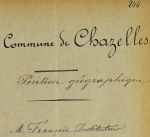 244
Commune de Chazelles
Position géographique
M. François Instituteur